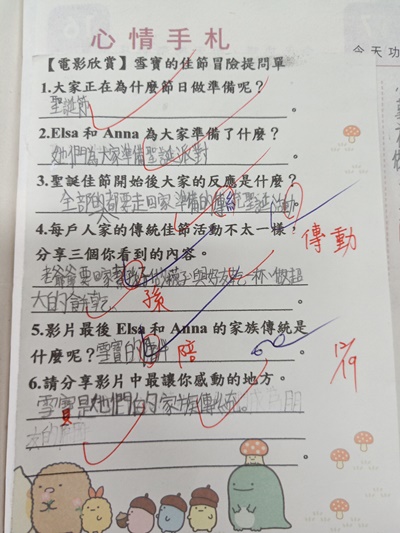 心情手札
今天功
【電影欣賞】雪寶的佳節冒險提問單
1.大家正在為什麼節日做準備呢？
聖誕節。
2.Elsa 和 Anna 為大家準備了什麼？
她們為大家準備聖誕派對。
3.聖誕佳節開始後大家的反應是什麼？
全部的 都要走回家準備的傳統聖誕活動。
人
4.每戶人家的傳統佳節活動不太一樣，
傳動
分享三個你看到的內容。
老爺爺要回家
大的餅乾。
孫
5.影片最後 Elsa 和 Anna 的家族傳統是
什麼呢？雪寶的
陪
12/19
6.請分享影片中最讓你感動的地方。
雪寶是她們的家族傳統。